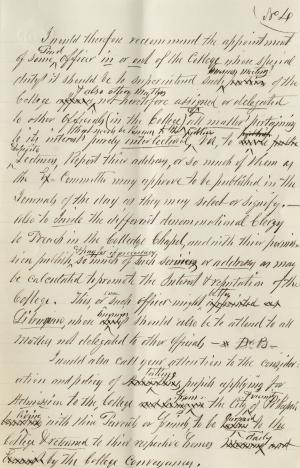 No 4
I would therefore recommend the appointment
of some Kind officer in or out of the College whose special
duty it should be to superintend such of the
College & also other matters not heretofore assigned or delegated
to other Officials in the College, all matter pertaining
to its internal purely intellectual
Lectures, Report their address, or so much of them as
the Ex Committee may approve to be published in the
Journals of the day as they may select or signify. —
also to invite the different denominational Clergy
to Preach in the Colledge Chapel, and with their permis-
sion publish, so much of such sermons or addresses as may
be calculated to promote the Interest & reputation of the
College. This, or such officer might
Librarian, whose duty should also be to attend to all
matters not delegated to other Officials — Dr B —
I would also call your attention to the consider-
ation and policy of taking pupils applying for
Admission to the College from the City of
with their Parents or friends to be to the
College & returned to their respective homes daily
by the College Conveyance.